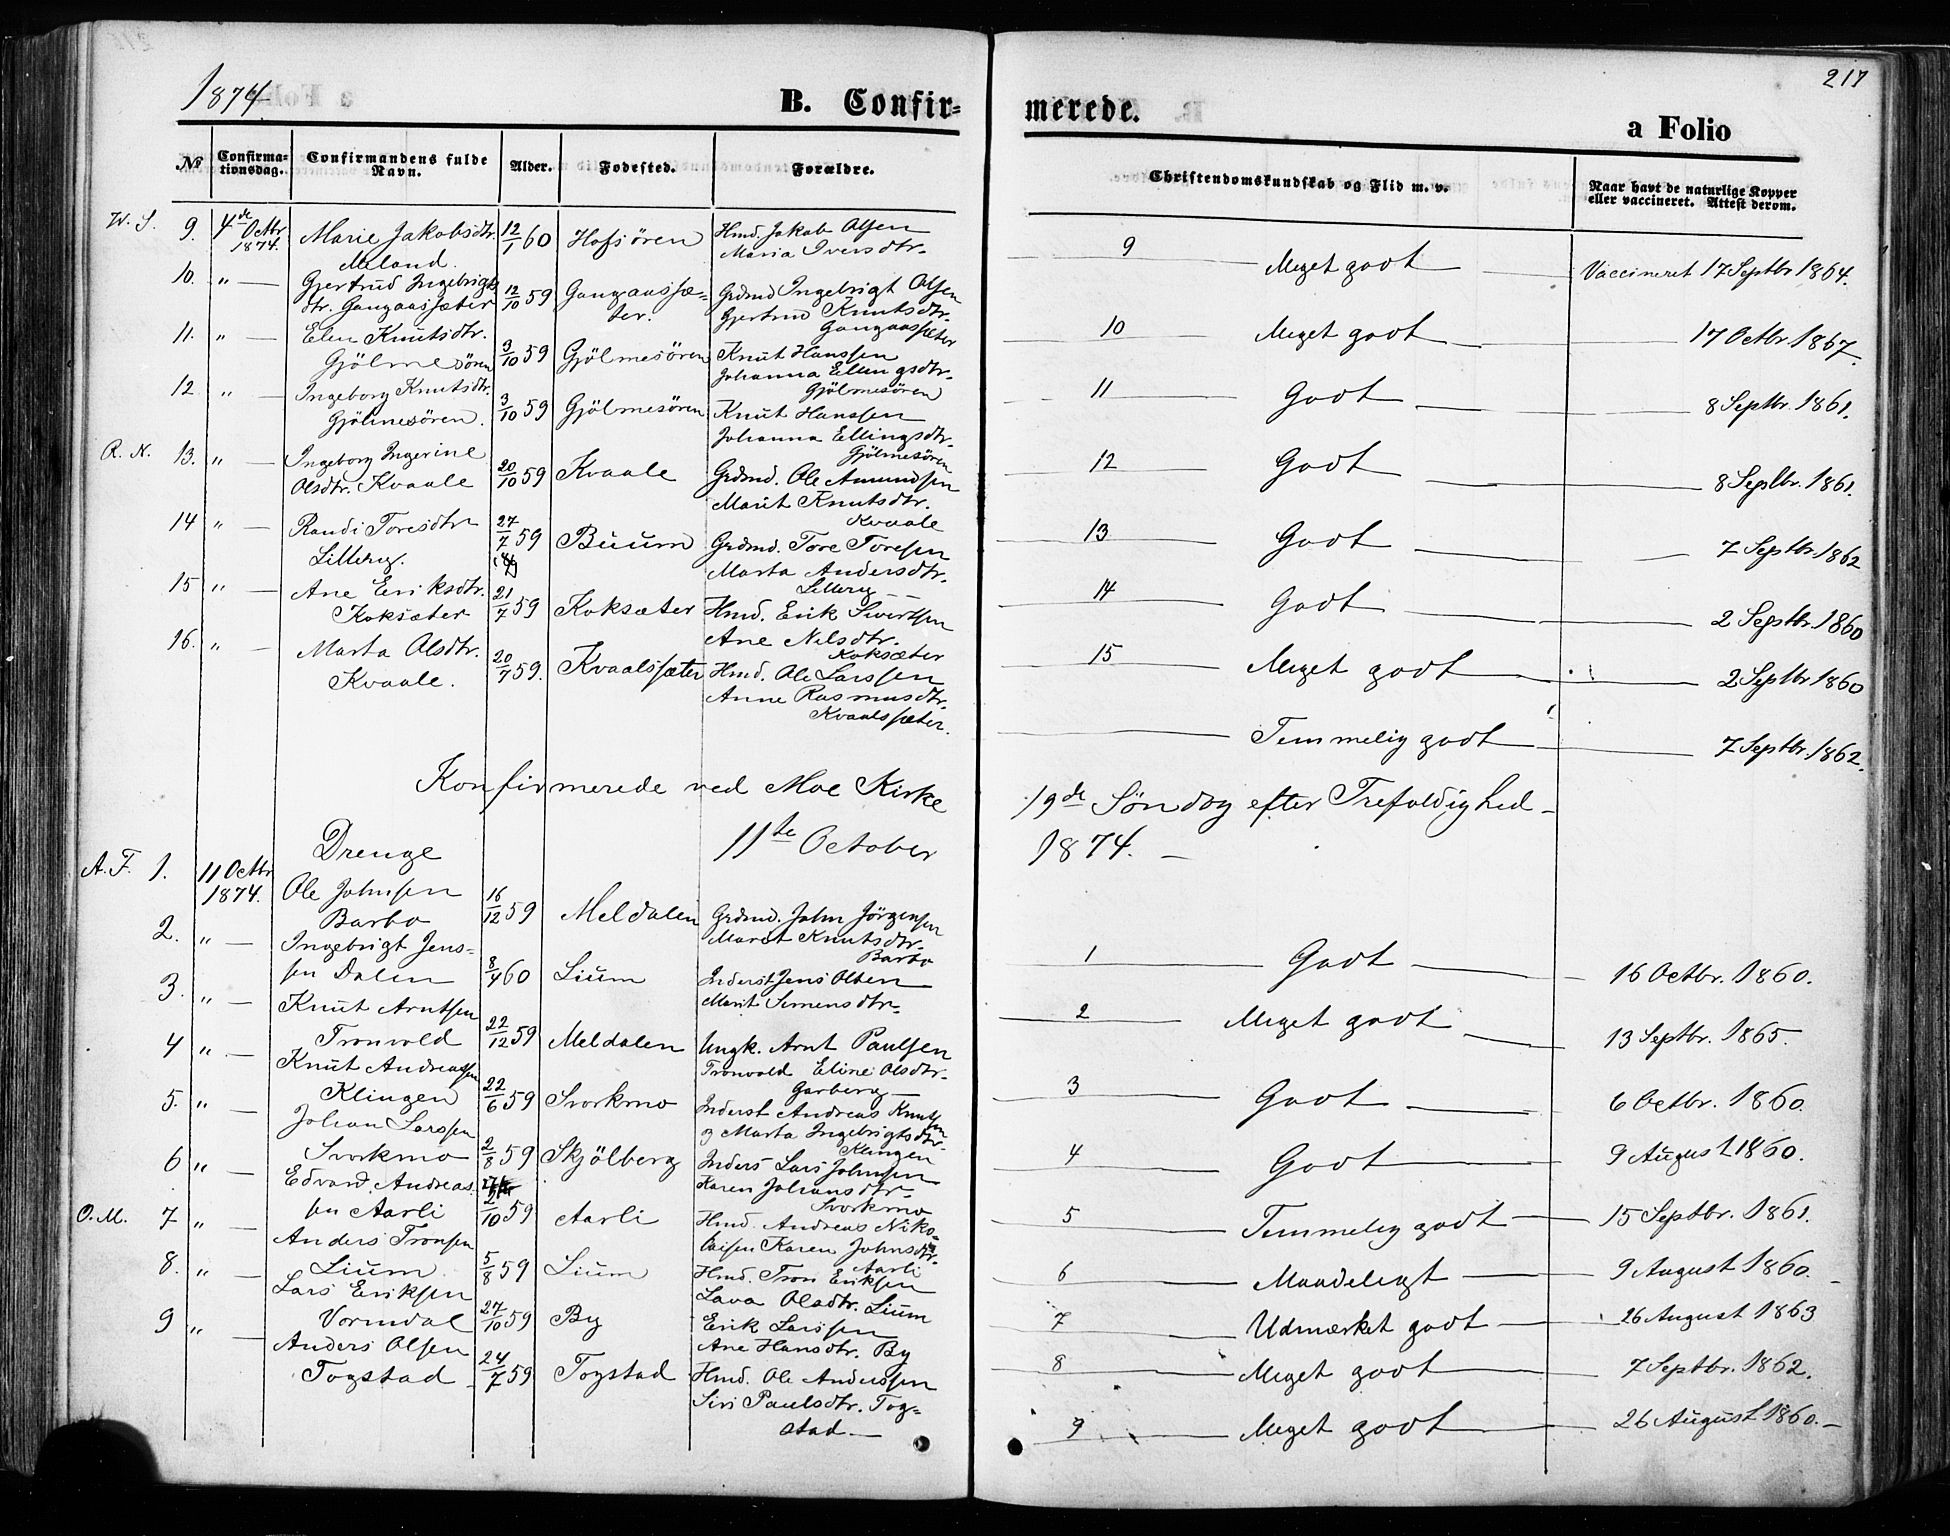 1874.
B. Confir=
№
Confirma-
tionsdag.
Confirmandens fulde
Navn.
Alder.
Fødested.
Forældre.
W. S. 9. 4de Octbr 1874. Marie Jakobsdtr. 12/1 60 Hofsören Hmd. Jakob Olsen
Meland. Maria Iversdtr.
10. " — Gjertrud Ingebrigts 12/10 59 Gangaassæ- Grdmd Ingebrigt Olsen
dtr. Gangaassæter ter. Gjertrud Knutsdtr.
Gangaassæter
11. " — Elen Knutsdtr. 3/10 59 Gjölmesören Knut Hanssen
Gjölmesören Johanna Ellingsdtr.
Gjölmesören
12 " — Ingeborg Knutsdtr. 3/10 59 Gjölmesören Knut Hanssen
Gjölmesören. Johanna Ellingsdtr.
Gjölmesören
R. N. 13. " — Ingeborg Ingerine 20/10 59 Kvaale Grdmd. Ole Amundsen
Olsdtr. Kvaale Marit Knutsdtr.
Kvaale
14 " — Randi Toresdtr 27/7 59 Buum Grdmd. Tore Toresen
Litlerug. Marta Andersdtr.
15 " — Ane Eriksdtr. 21/7 59 Koksæter Hmd. Erik Sivertsen
Koksæter Ane Nilsdtr.
Koksæter
16. " — Marta Olsdtr. 20/7 59. Kvaalssæter Hmd. Ole Larssen
Kvaale. Anne Rasmusdtr.
Kvaalssæter.
Konfirmerede ved Moe Kirke
11te October
Drenge
A. F. 1. 11 Octbr 1874. Ole Johnsen 16/12 59 Meldalen Grdmd. John Jörgensen
Barbo Marit Knutsdtr.
Barbo
2. " — Ingebrigt Jens- 8/4 60 Lium Inderst Jens Olsen
sen Dalen Marit Simensdtr.
3. " — Knut Arntsen 22/12 59 Meldalen Ungk. Arnt Paulsen
Tronvold Tronvold Eline Olsdtr.
Garberg
4 " — Knut Andreassen 22/6 59 Svorkmo Inderst Andreas Knutsen
Klingen og Marta Ingebrigtsdtr.
Klingen
5. " — Johan Larssen 2/8 59 Skjölberg Inders Lars Johnsen
Svorkmo Karen Johansdtr.
Svorkmo
6 " — Edvard Andreas- 2/10 59 Aarli Hmd. Andreas Niko-
sen Aarli laisen Karen Johnsdtr.
Aarli
O. M. 7 " — Anders Tronsen 5/8 59 Lium Hmd. Tron Eriksen
Lium Lava Olsdtr. Lium
8. " — Lars Eriksen 27/10 59 By Erik Larssen
Vormdal Ane Hansdtr. By
9 " — Anders Olsen 24/7 59 Togstad Hmd. Ole Anderssen
Togstad Siri Paulsdtr. Tog=
stad —
217
merede.
a Folio
Christendomskundskab og Flid m. v.
Naar havt de naturlige Kopper
eller vaccineret. Attest derom.
9 — Meget godt — Vaccineret 17 Septbr 1864.
10 — Meget godt — 17 Octbr 1867.
11 — Godt — 8 Septbr. 1861.
12 — Godt — 8 Septbr. 1861.
13 — Godt — 7 Septbr. 1862
14 — Godt — 2 Septbr. 1860
15 — Meget godt — 2 Septbr 1860
— Temmelig godt — 7 Septbr. 1862.
19de Söndag efter Trefoldighed-
1874. —
1 — Godt — 16 Octbr. 1860.
2 — Meget godt — 13 Septbr. 1865.
3 — Godt — 6 Octbr. 1860.
4 — Godt — 9 August 1860.
5 — Temmelig godt — 15 Septbr. 1861.
6 — Maadeligt — 9 August 1860.
7 — Udmærket godt — 26 August 1863
8 — Meget godt — 7 Septbr. 1862.
9 — Meget godt — 26 August 1860.—